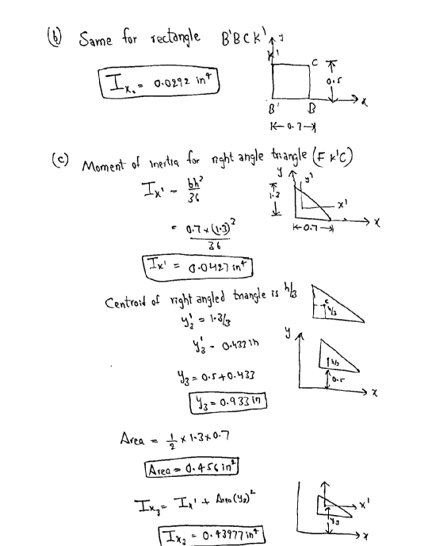 (b) Same for rectangle B'BCK'
Ix₂ = 0.0292 in⁴
K' y
C
0.5
B' B x
0.7
(c) Moment of inertia for right angle triangle (FK'C)
Ix' = bh³/36
y y'
1.3
x'
0.7 x
= 0.7 × (1.3)³/36
Ix' = 0.0427 in⁴
Centroid of right angled triangle is h/3
c h/3
y₃' = 1.3/3
y₃' = 0.433 in
y
h/3
y₃ = 0.5 + 0.433
0.5
x
y₃ = 0.933 in
Area = 1/2 × 1.3 × 0.7
Area = 0.456 in²
Ix₃ = Ix' + Area (y₃)²
x'
y₃
Ix₃ = 0.43977 in⁴